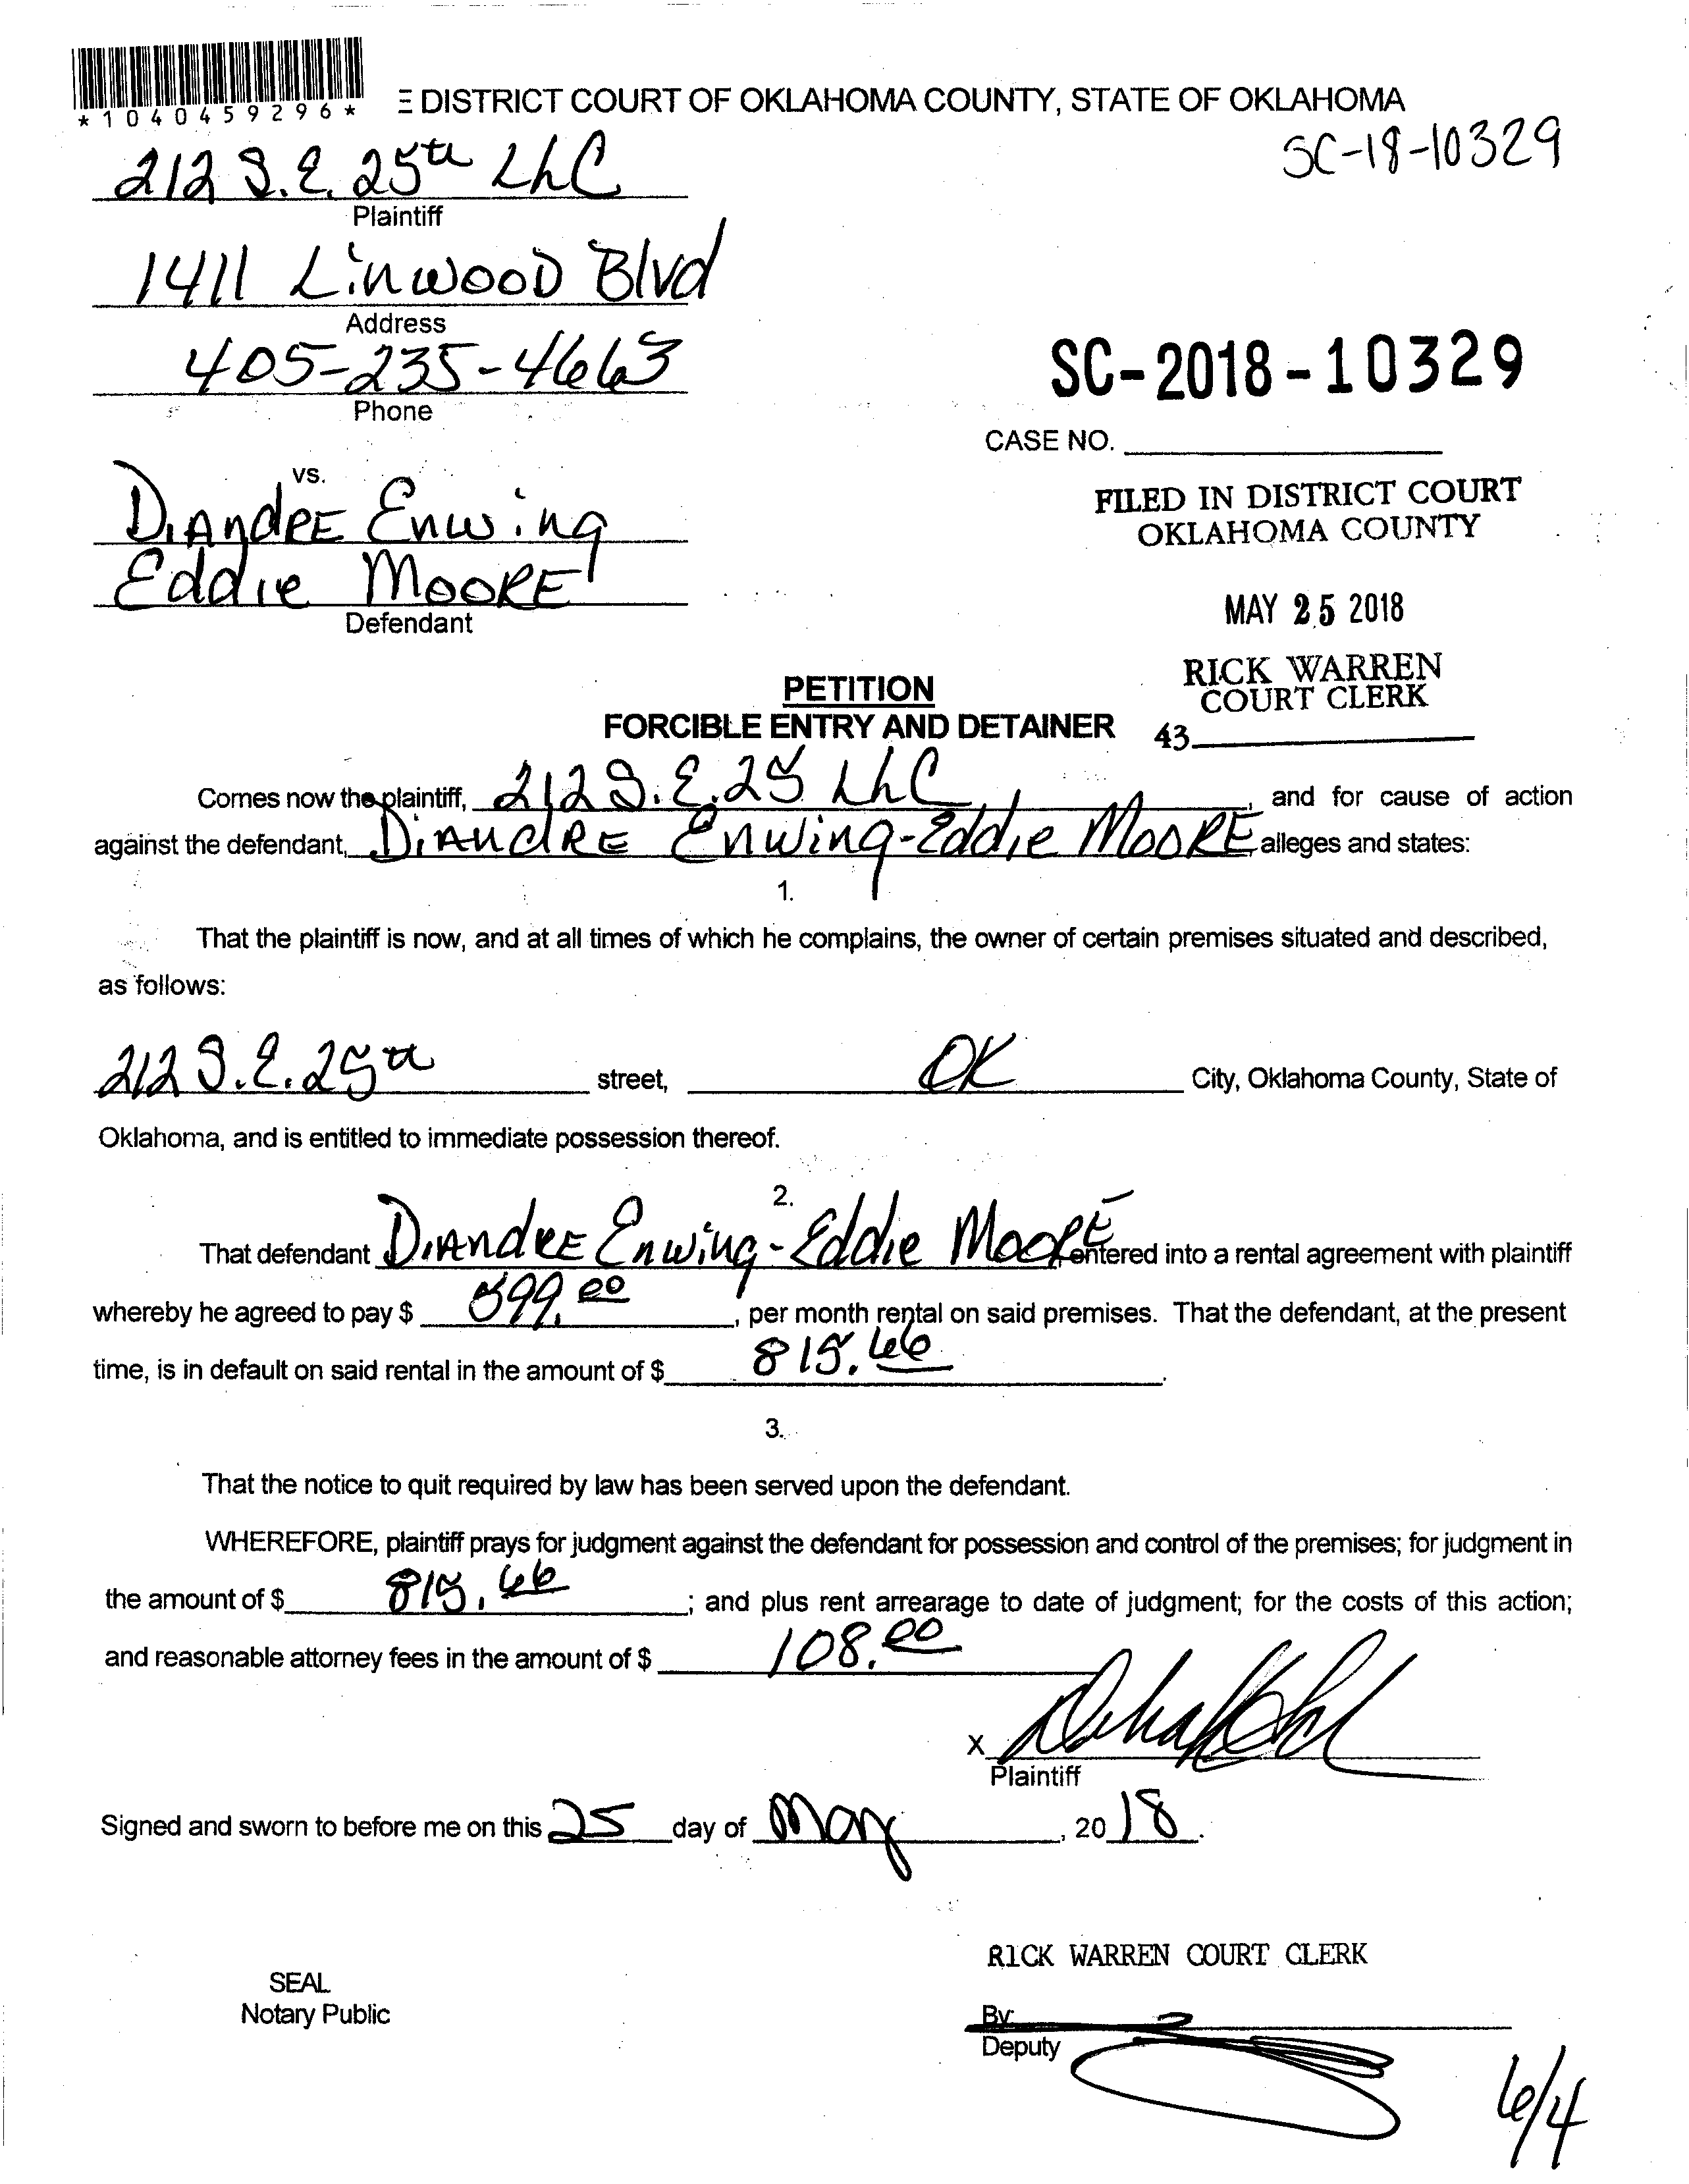 *1040459296*
E DISTRICT COURT OF OKLAHOMA COUNTY, STATE OF OKLAHOMA
SC-18-10329
212 S.E. 25th LLC
Plaintiff
1411 Linwood Blvd
Address
405-235-4663
Phone
SC-2018-10329
CASE NO.
vs.
DiAndRE Enwing
Eddie MooRE
Defendant
FILED IN DISTRICT COURT
OKLAHOMA COUNTY
MAY 25 2018
RICK WARREN
COURT CLERK
43
PETITION
FORCIBLE ENTRY AND DETAINER
Comes now the plaintiff, 212 S.E. 25 LLC, and for cause of action
against the defendant, DiAndRE Enwing-Eddie MooRE, alleges and states:
1.
That the plaintiff is now, and at all times of which he complains, the owner of certain premises situated and described,
as follows:
212 S.E. 25th street, OK City, Oklahoma County, State of
Oklahoma, and is entitled to immediate possession thereof.
2.
That defendant DiAndRE Enwing-Eddie MooRE entered into a rental agreement with plaintiff
whereby he agreed to pay $ 599.00, per month rental on said premises. That the defendant, at the present
time, is in default on said rental in the amount of $ 815.66.
3.
That the notice to quit required by law has been served upon the defendant.
WHEREFORE, plaintiff prays for judgment against the defendant for possession and control of the premises; for judgment in
the amount of $ 815.66; and plus rent arrearage to date of judgment; for the costs of this action;
and reasonable attorney fees in the amount of $ 108.00
X
Plaintiff
Signed and sworn to before me on this 25 day of May, 2018.
RICK WARREN COURT CLERK
SEAL
Notary Public
By
Deputy
6/4